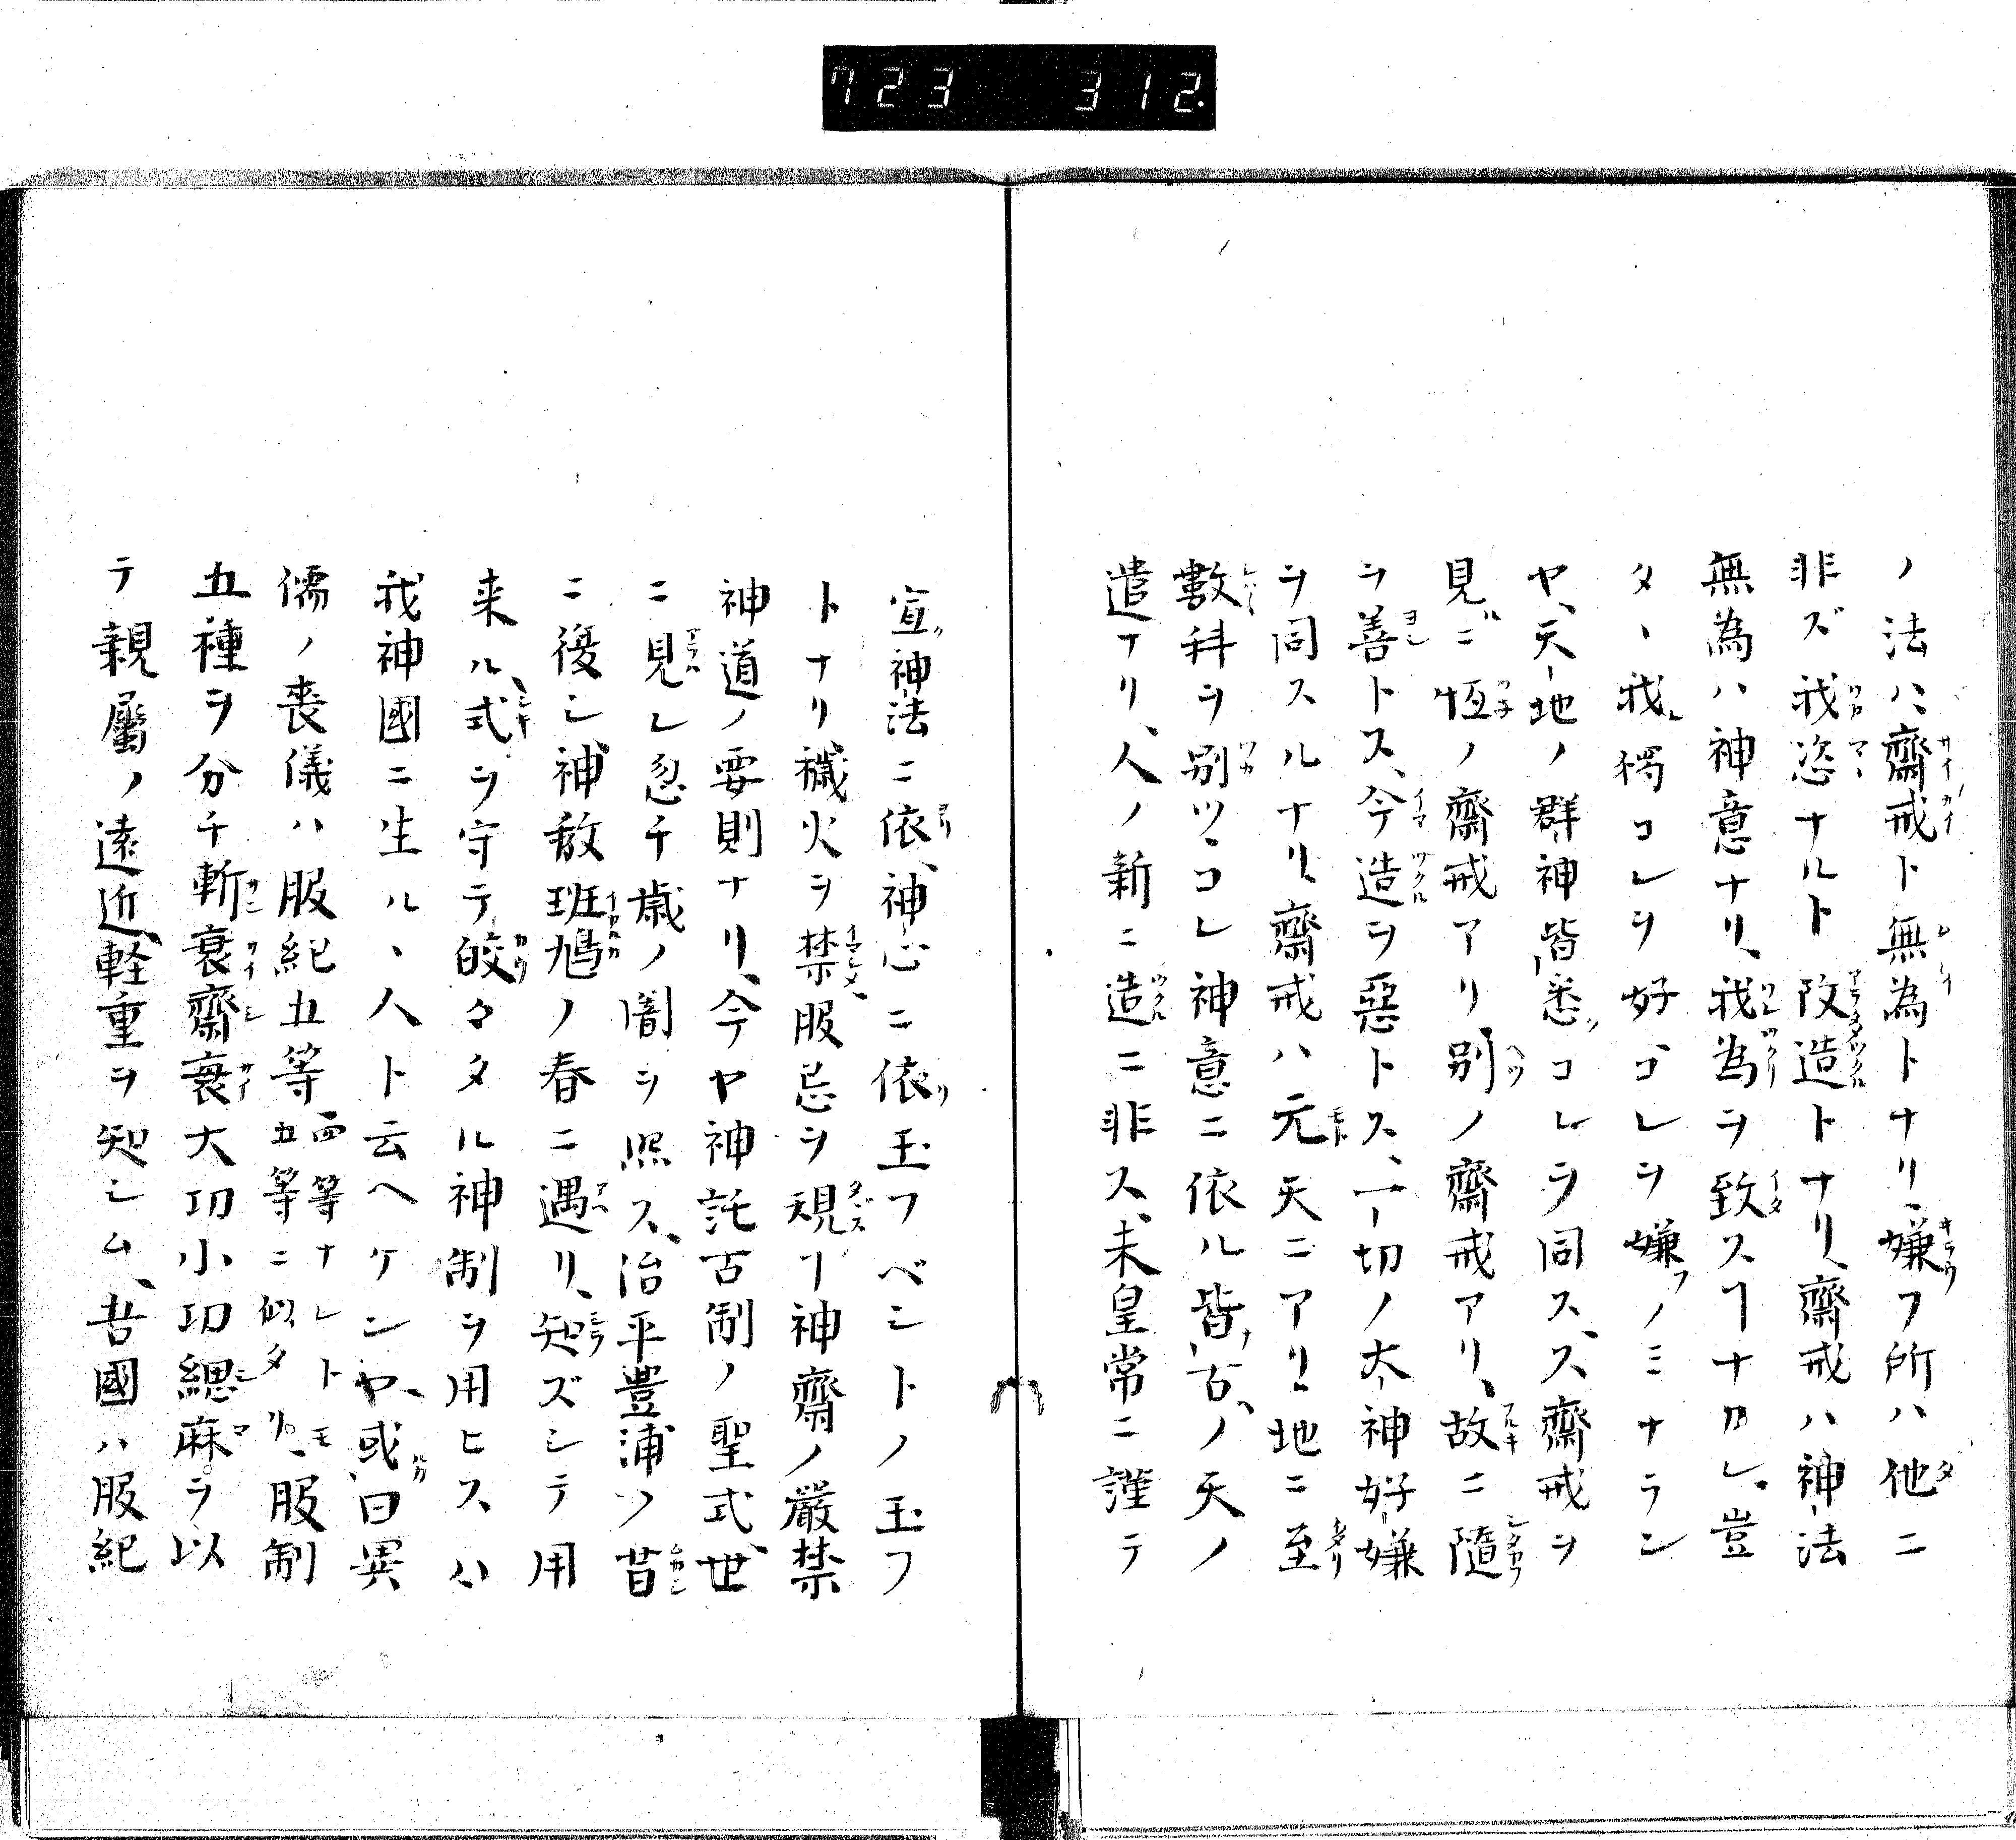 723 312.
ノ法ハ齋戒ト無為トナリ、嫌フ所ハ他ニ
非ズ我恣ナルト改造トナリ、齋戒ハ神法
無為ハ神意ナリ、我為ヲ致スヿナカレ、豈
タヽ我獨コレヲ好ゴレヲ嫌フノミナラン
ヤ、天地ノ群神皆悉コレヲ同ス、ス齋戒ヲ
見ニ恆ノ齋戒アリ別ノ齋戒アリ、故ニ隨
ヲ善トス、今造ヲ惡トス、一切ノ大神好嫌
ヲ同スルナリ、齋戒ハ元天ニアリ地ニ至
數科ヲ別ツ、コレ神意ニ依ル皆古ノ天ノ
遣ナリ、人ノ新ニ造ニ非ス、未皇常ニ謹テ
宣神法ニ依、神心ニ依玉フベシトノ玉フ
トナリ穢火ヲ禁、服忌ヲ規ヿ神齋ノ嚴禁
神道ノ要則ナリ、今ヤ神託古制ノ聖式、世
ニ見レ忽チ歳ノ闇ヲ照ス、治平豊浦ノ昔
ニ復シ、神教班鳩ノ春ニ遇リ、知ズシテ用
来ル、式ヲ守テ皎々タル神制ヲ用ヒスハ
我神國ニ生ルヽ人ト云ヘケンヤ、或曰異
儒ノ喪儀ハ服紀五等四等ナレトモ五等ニ似タリ、服制
五種ヲ分チ斬衰齋衰大功小功緦麻ヲ以
テ親屬ノ遠近、軽重ヲ知シム、吾國ハ服紀